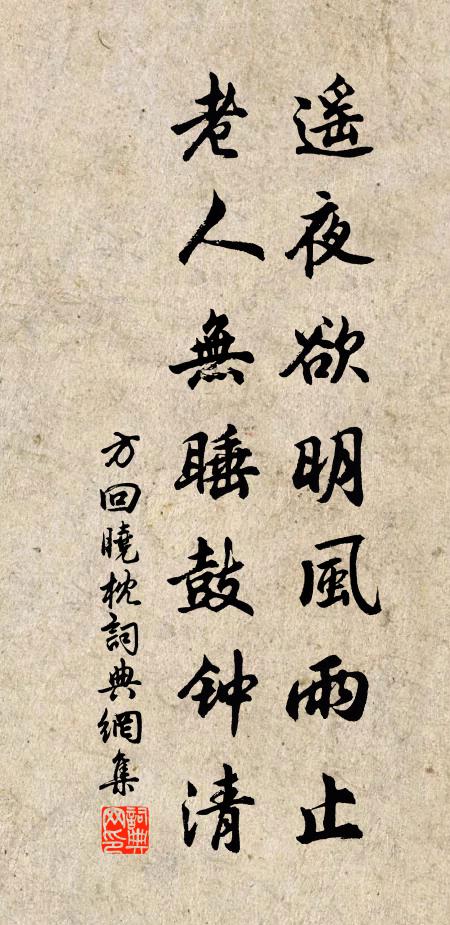 遥夜欲明風雨止
老人無睡鼓钟清
方回曉枕詞典網集
詞典網印